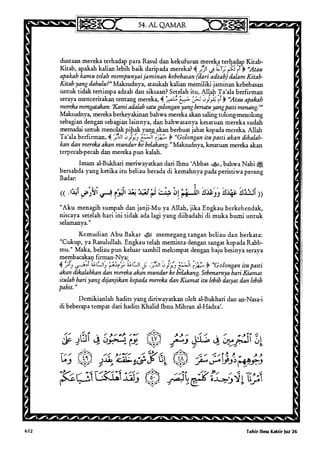 54. AL QAMAR
dustaan mereka terhadap para Rasul dan kekufuran mereka terhadap Kitab-
Kitab, apakah kalian lebih baik daripada mereka? ﴾ أَمْ لَكُم بَرَآءَةٌ فِي الزُّبُرِ ﴿ "Atau
apakah kamu telah mempunyai jaminan kebebasan (dari adzab) dalam Kitab-
Kitab yang dahulu?" Maksudnya, ataukah kalian memiliki jaminan kebebasan
untuk tidak tertimpa adzab dan siksaan? Setelah itu, Allah Ta'ala berfirman
seraya menceritakan tentang mereka, ﴾ أَمْ يَقُولُونَ نَحْنُ جَمِيعٌ مُّنتَصِرٌ ﴿ "Atau apakah
mereka mengatakan: 'Kami adalah satu golongan yang bersatu yang pasti menang.'"
Maksudnya, mereka berkeyakinan bahwa mereka akan saling tolong-menolong
sebagian dengan sebagian lainnya, dan bahwasanya kesatuan mereka sudah
memadai untuk menolak pihak yang akan berbuat jahat kepada mereka. Allah
Ta'ala berfirman, ﴾ سَيُهْزَمُ الْجَمْعُ وَيُوَلُّونَ الدُّبُرَ ﴿ "Golongan itu pasti akan dikalah-
kan dan mereka akan mundur ke belakang." Maksudnya, kesatuan mereka akan
terpecah-pecah dan mereka pun kalah.
Imam al-Bukhari meriwayatkan dari Ibnu 'Abbas ؓ, bahwa Nabi ﷺ
bersabda yang ketika itu beliau berada di kemahnya pada peristiwa perang
Badar:
(( أَنْشُدُكَ عَهْدَكَ وَوَعْدَكَ اللَّهُمَّ إِنْ شِئْتَ لَمْ تُعْبَدْ بَعْدَ الْيَوْمِ فِي الْأَرْضِ أَبَدًا. ))
"Aku menagih sumpah dan janji-Mu ya Allah, jika Engkau berkehendak,
niscaya setelah hari ini tidak ada lagi yang diibadahi di muka bumi untuk
selamanya."
Kemudian Abu Bakar ؓ memegang tangan beliau dan berkata:
"Cukup, ya Rasulullah. Engkau telah meminta dengan sangat kepada Rabb-
mu." Maka, beliau pun keluar sambil melompat dengan baju besinya seraya
membacakan firman-Nya:
﴾ سَيُهْزَمُ الْجَمْعُ وَيُوَلُّونَ الدُّبُرَ. بَلِ السَّاعَةُ مَوْعِدُهُمْ وَالسَّاعَةُ أَدْهَى وَأَمَرُّ ﴿ "Golongan itu pasti
akan dikalahkan dan mereka akan mundur ke belakang. Sebenarnya hari Kiamat
itulah hari yang dijanjikan kepada mereka dan Kiamat itu lebih dasyat dan lebih
pahit."
Demikianlah hadits yang diriwayatkan oleh al-Bukhari dan an-Nasa-i
di beberapa tempat dari hadits Khalid Ibnu Mihran al-Hadza'.
إِنَّ الْمُجْرِمِينَ فِي ضَلَالٍ وَسُعُرٍ ﴿٤٧﴾ يَوْمَ يُسْحَبُونَ فِي النَّارِ عَلَىٰ
وُجُوهِهِمْ ذُوقُوا مَسَّ سَقَرَ ﴿٤٨﴾ إِنَّا كُلَّ شَيْءٍ خَلَقْنَاهُ بِقَدَرٍ ﴿٤٩﴾ وَمَا
أَمْرُنَا إِلَّا وَاحِدَةٌ كَلَمْحٍ بِالْبَصَرِ ﴿٥٠﴾ وَلَقَدْ أَهْلَكْنَا أَشْيَاعَكُمْ
612
Tafsir Ibnu Katsir Juz 26